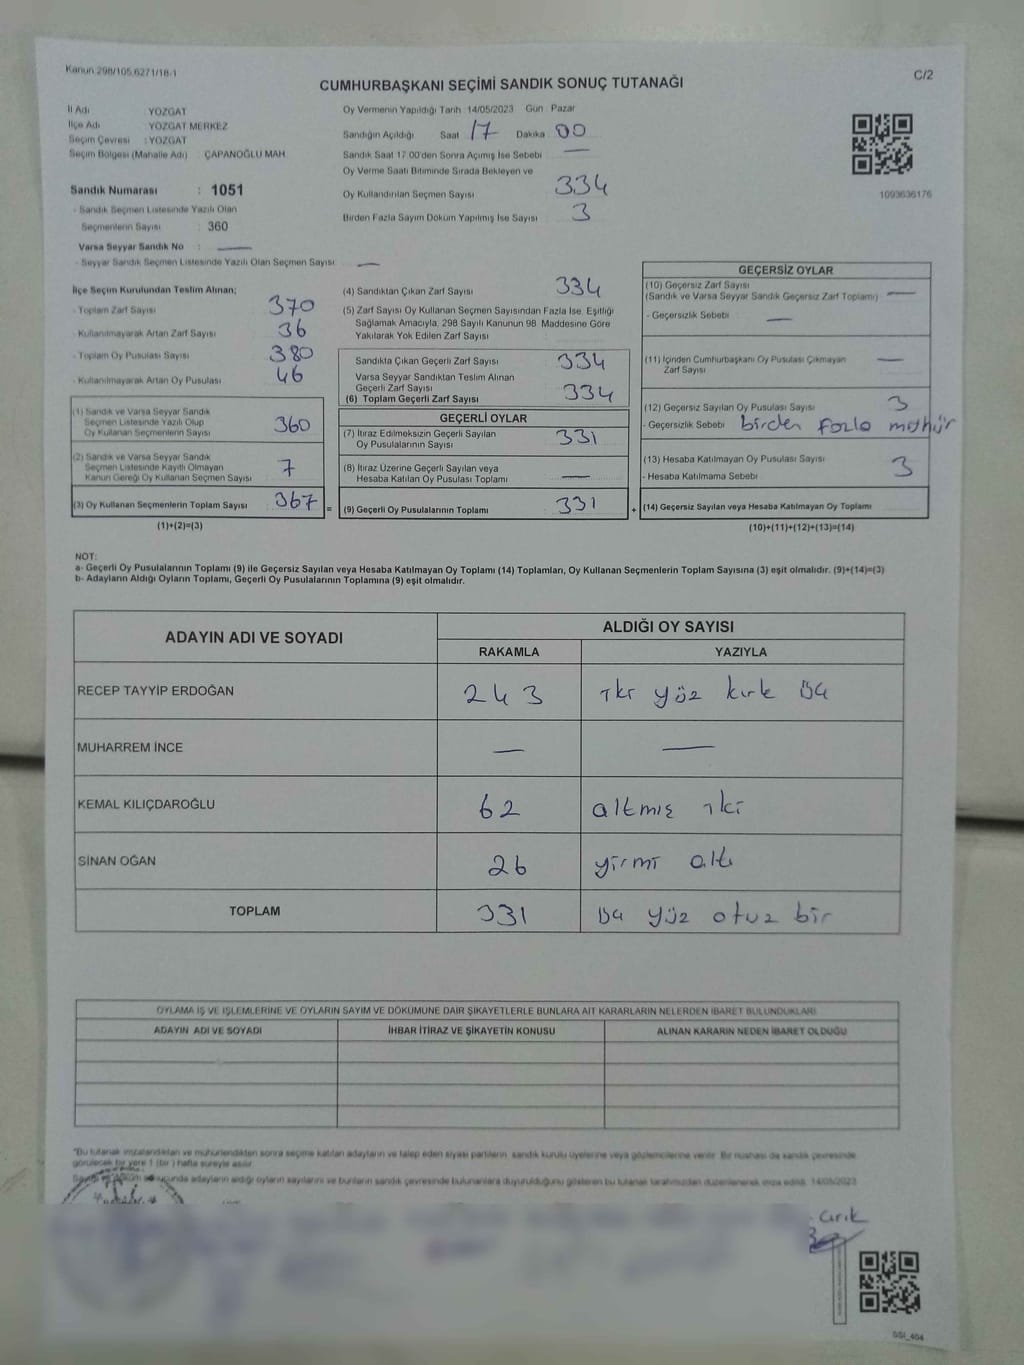 Kanun 298/105,6271/18-1
C/2
CUMHURBAŞKANI SEÇİMİ SANDIK SONUÇ TUTANAĞI
İl Adı YOZGAT
İlçe Adı YOZGAT MERKEZ
Seçim Çevresi : YOZGAT
Seçim Bölgesi (Mahalle Adı) ÇAPANOĞLU MAH
Sandık Numarası : 1051
- Sandık Seçmen Listesinde Yazılı Olan
Seçmenlerin Sayısı : 360
Varsa Seyyar Sandık No : —
- Seyyar Sandık Seçmen Listesinde Yazılı Olan Seçmen Sayısı: —
Oy Vermenin Yapıldığı Tarih 14/05/2023 Gün Pazar
Sandığın Açıldığı Saat 17 Dakika 00
Sandık Saat 17.00'den Sonra Açımış İse Sebebi —
Oy Verme Saati Bitiminde Sırada Bekleyen ve
Oy Kullandırılan Seçmen Sayısı 334
Birden Fazla Sayım Döküm Yapılmış İse Sayısı 3
1093636176
İlçe Seçim Kurulundan Teslim Alınan;
- Toplam Zarf Sayısı 370
- Kullanılmayarak Artan Zarf Sayısı 36
- Toplam Oy Pusulası Sayısı 380
- Kullanılmayarak Artan Oy Pusulası 46
(1) Sandık ve Varsa Seyyar Sandık
Seçmen Listesinde Yazılı Olup
Oy Kullanan Seçmenlerin Sayısı 360
(2) Sandık ve Varsa Seyyar Sandık
Seçmen Listesinde Kayıtlı Olmayan
Kanun Gereği Oy Kullanan Seçmen Sayısı 7
(3) Oy Kullanan Seçmenlerin Toplam Sayısı 367
(1)+(2)=(3)
(4) Sandıktan Çıkan Zarf Sayısı 334
(5) Zarf Sayısı Oy Kullanan Seçmen Sayısından Fazla İse, Eşitliği
Sağlamak Amacıyla, 298 Sayılı Kanunun 98. Maddesine Göre
Yakılarak Yok Edilen Zarf Sayısı
Sandıkta Çıkan Geçerli Zarf Sayısı 334
Varsa Seyyar Sandıktan Teslim Alınan
Geçerli Zarf Sayısı
(6) Toplam Geçerli Zarf Sayısı 334
GEÇERLİ OYLAR
(7) İtiraz Edilmeksizin Geçerli Sayılan
Oy Pusulasının Sayısı 331
(8) İtiraz Üzerine Geçerli Sayılan veya
Hesaba Katılan Oy Pusulası Toplamı —
= (9) Geçerli Oy Pusulalarının Toplamı 331
GEÇERSİZ OYLAR
(10) Geçersiz Zarf Sayısı
(Sandık ve Varsa Seyyar Sandık Geçersiz Zarf Toplamı) —
- Geçersizlik Sebebi : —
(11) İçinden Cumhurbaşkanı Oy Pusulası Çıkmayan
Zarf Sayısı —
(12) Geçersiz Sayılan Oy Pusulası Sayısı 3
- Geçersizlik Sebebi birden fazla mühür
(13) Hesaba Katılmayan Oy Pusulası Sayısı 3
- Hesaba Katılmama Sebebi
+ (14) Geçersiz Sayılan veya Hesaba Katılmayan Oy Toplamı
(10)+(11)+(12)+(13)=(14)
NOT:
a- Geçerli Oy Pusulalarının Toplamı (9) ile Geçersiz Sayılan veya Hesaba Katılmayan Oy Toplamı (14) Toplamları, Oy Kullanan Seçmenlerin Toplam Sayısına (3) eşit olmalıdır. (9)+(14)=(3)
b- Adayların Aldığı Oyların Toplamı, Geçerli Oy Pusulalarının Toplamına (9) eşit olmalıdır.
ADAYIN ADI VE SOYADI
ALDIĞI OY SAYISI
RAKAMLA YAZIYLA
RECEP TAYYİP ERDOĞAN 243 iki yüz kırk üç
MUHARREM İNCE — —
KEMAL KILIÇDAROĞLU 62 altmış iki
SİNAN OĞAN 26 yirmi altı
TOPLAM 331 üç yüz otuz bir
OYLAMA İŞ VE İŞLEMLERİNE VE OYLARIN SAYIM VE DÖKÜMÜNE DAİR ŞİKAYETLERLE BUNLARA AİT KARARLARIN NELERDEN İBARET BULUNDUKLARI
ADAYIN ADI VE SOYADI İHBAR İTİRAZ VE ŞİKAYETİN KONUSU ALINAN KARARIN NEDEN İBARET OLDUĞU
"Bu tutanak imzalandıktan ve mühürlendikten sonra seçime katılan adayların ve talep eden siyasi partilerin sandık kurulu üyelerine veya gözlemcilerine verilir. Bir nüshası da sandık çevresinde
görülecek bir yere 1 (bir) hafta süreyle asılır.
sonucunda adayların aldığı oyların sayılarını ve bunların sandık çevresinde bulunanlara duyurulduğunu gösteren bu tutanak tarafımızdan düzenlenerek imza edildi. 14/05/2023
SSI_404